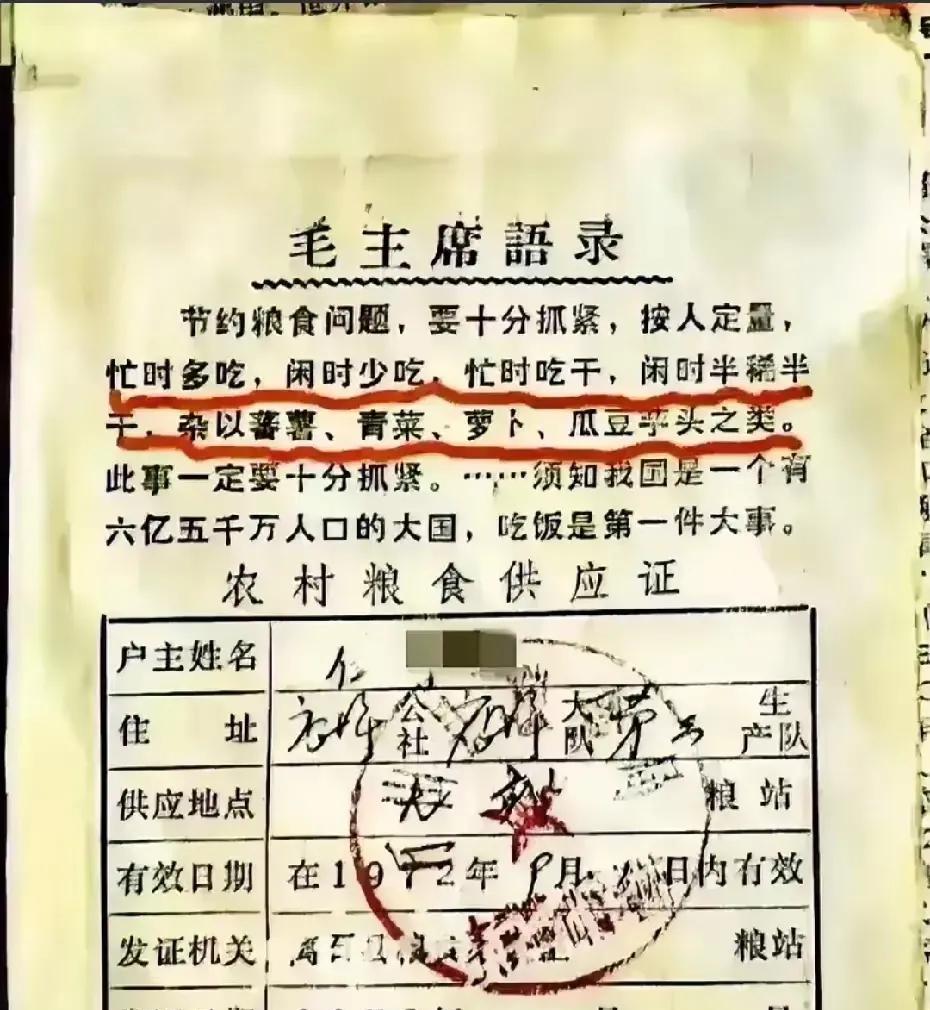 毛主席語录
节约粮食问题，要十分抓紧，按人定量，
忙时多吃，闲时少吃，忙时吃干，闲时半稀半
干，杂以蕃薯、青菜、萝卜、瓜豆芋头之类。
此事一定要十分抓紧。……须知我国是一个有
六亿五千万人口的大国，吃饭是第一件大事。
农村粮食供应证
户主姓名
住 址 公社 大队 第 生产队
供应地点 粮站
有效日期 在1972年9月 日内有效
发证机关 粮站